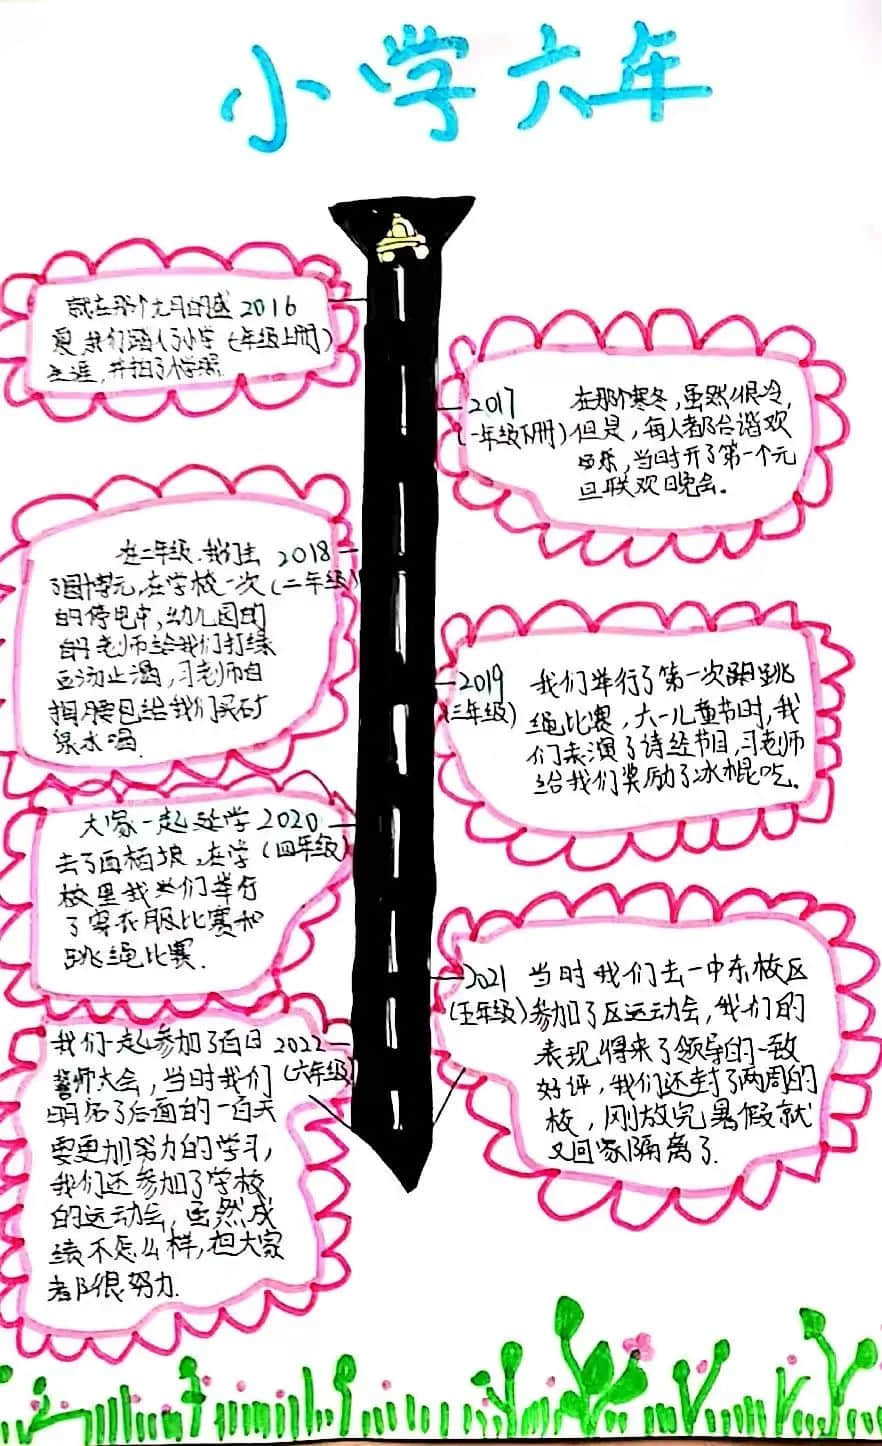 小学六年
就在那个九月的盛 2016
夏,我们踏入了小学 (一年级上册)
生涯,并拍了小学照.
2017 在那个寒冬,虽然很冷,
(一年级下册) 但是,每人都合谐欢
乐,当时开了第一个元
旦联欢晚会。
在二年级,我们去 2018
了园博元,在学校一次 (二年级)
的停电中,幼儿园的
老师给我们打绿
豆汤止渴,习老师自
掏腰包给我们买矿
泉水喝.
2019 我们举行了第一次跳
(三年级) 绳比赛,六一儿童节时,我
们表演了诗经节目,习老师
给我们奖励了冰棍吃.
大家一起延学 2020
去了西柏坡,在学 (四年级)
校里我们举行
了穿衣服比赛和
跳绳比赛.
2021 当时我们去一中东校区
(五年级) 参加了区运动会,我们的
表现得来了领导的一致
好评,我们还封了两周的
校,刚放完暑假就
又回家隔离了.
我们一起参加了百日 2022
誓师大会,当时我们 (六年级)
明白了后面的一百天
要更加努力的学习,
我们还参加了学校
的运动会,虽然成
绩不怎么样,但大家
都很努力.